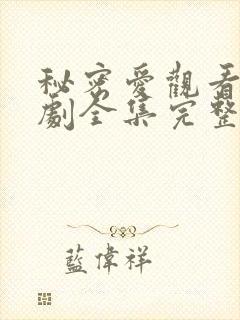 秘密愛觀看
劇全集完整
藍偉祥